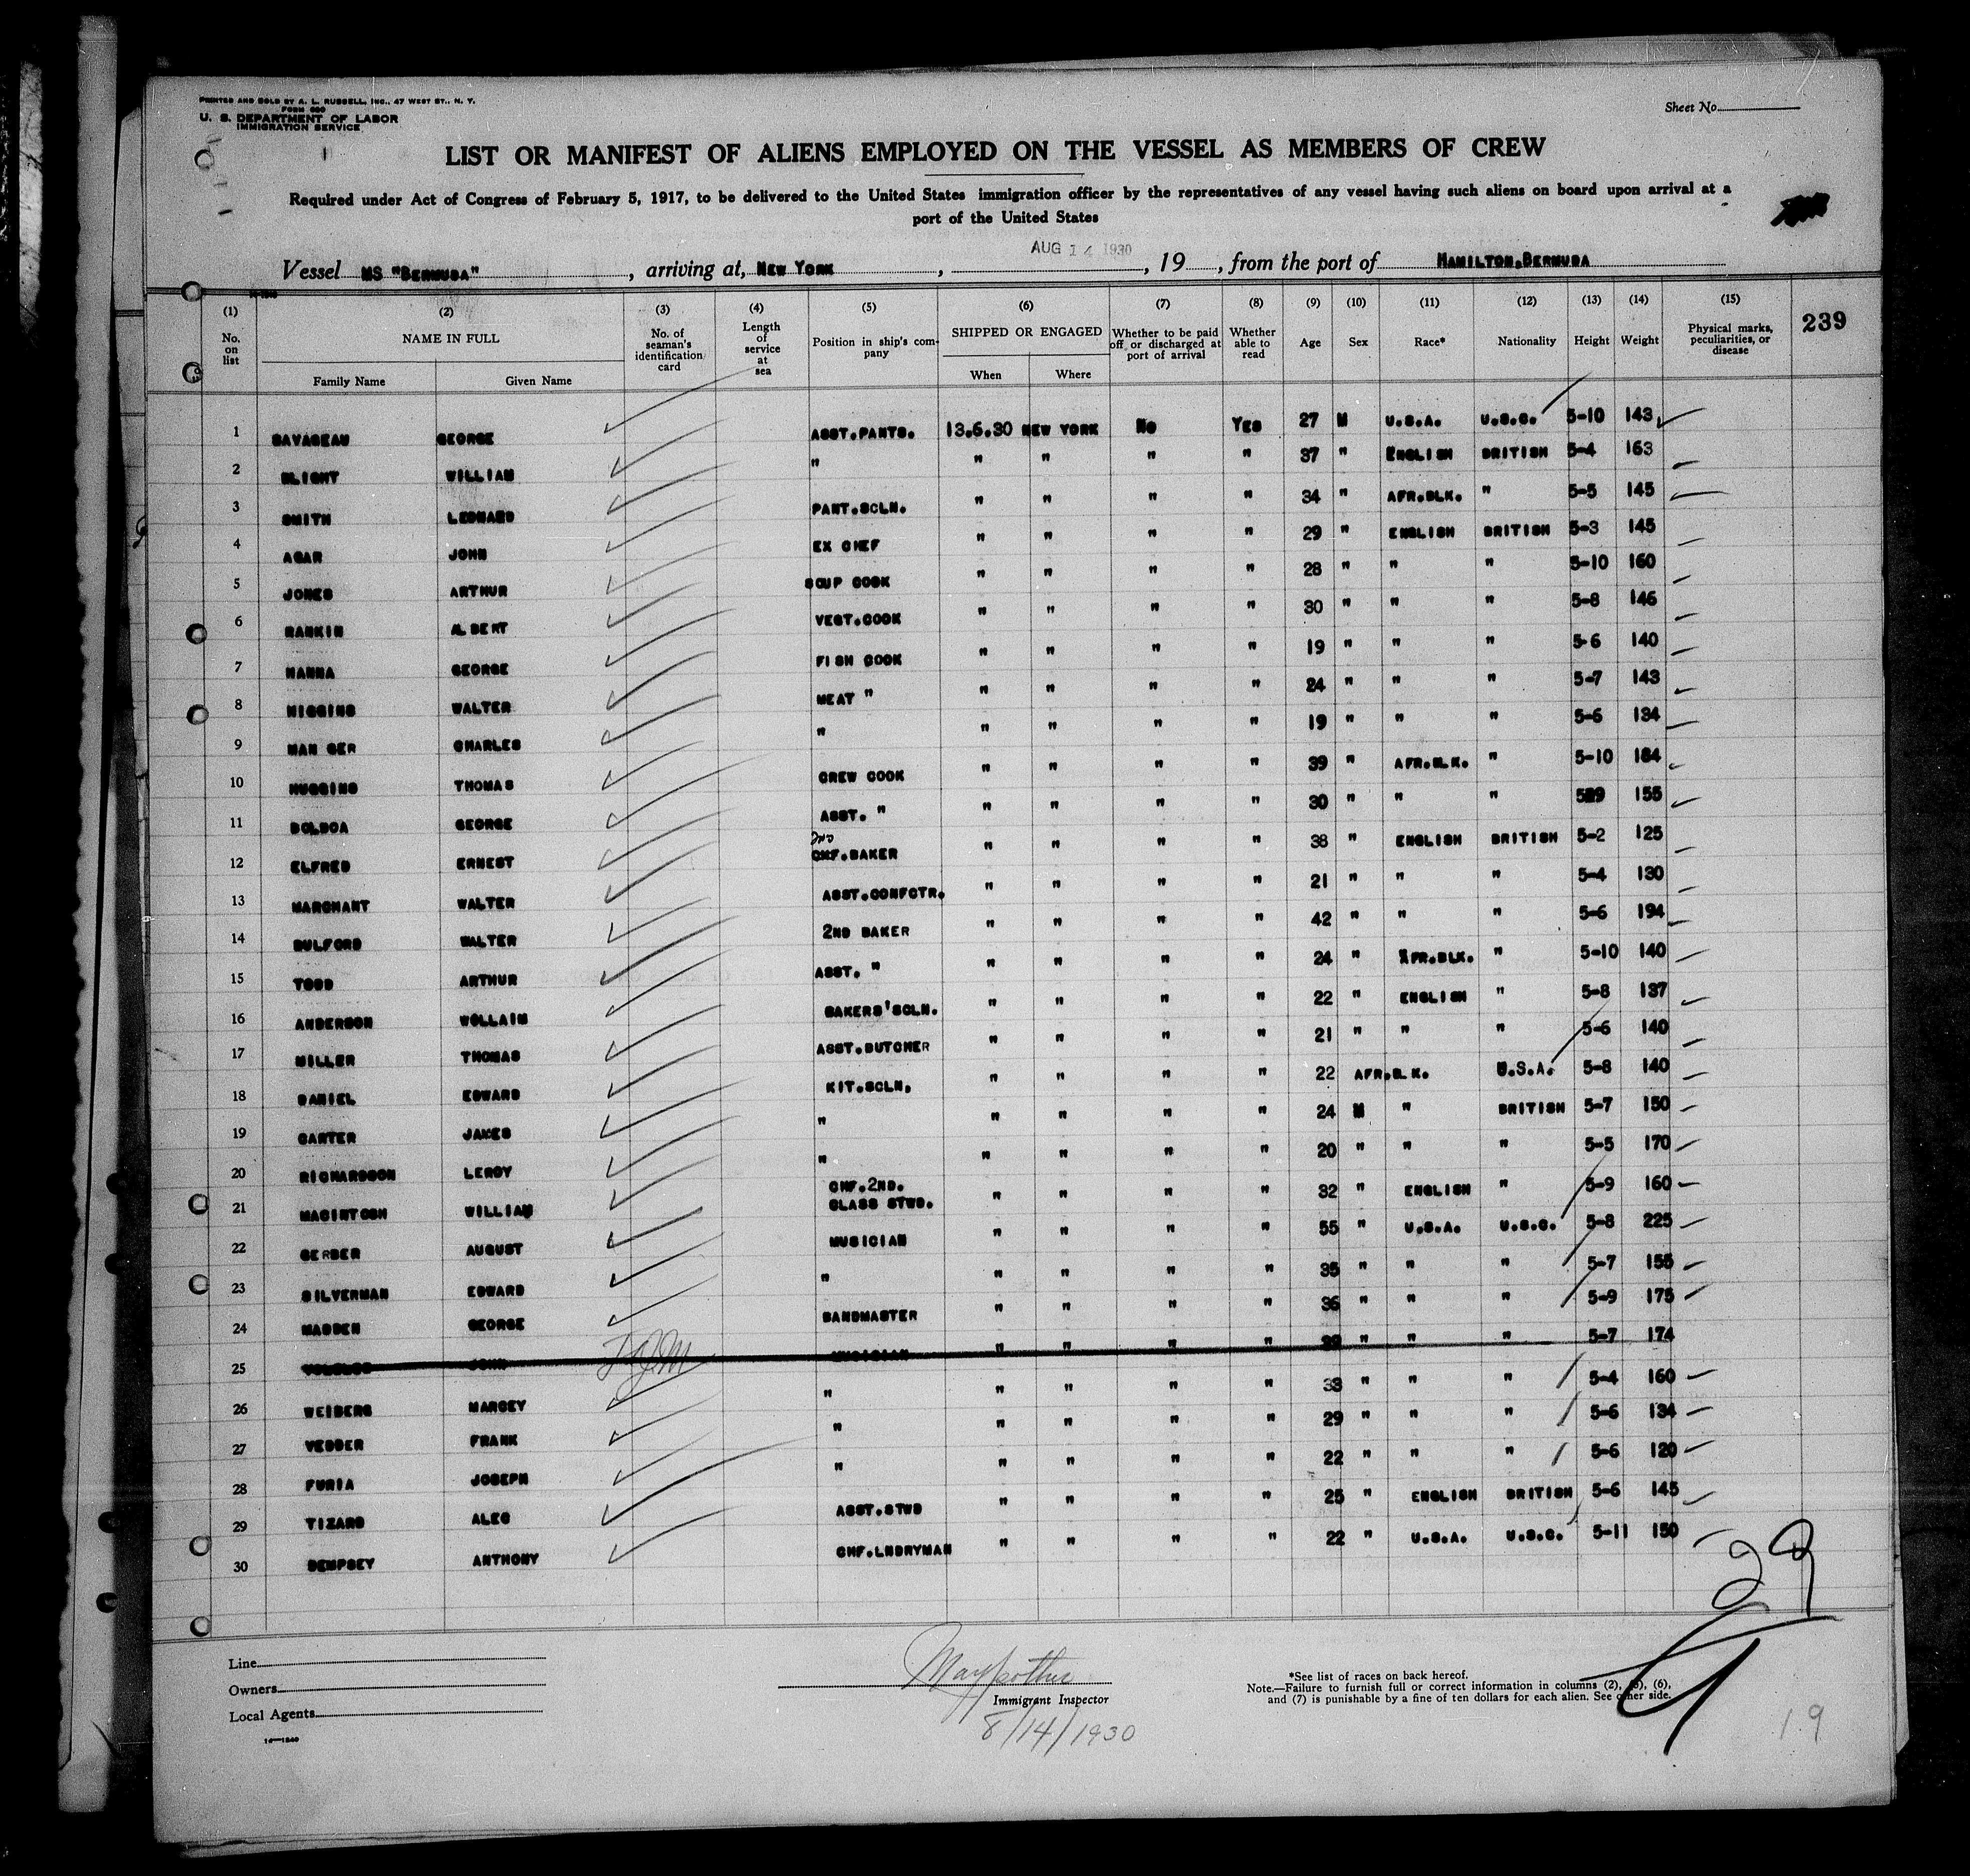 PRINTED AND SOLD BY A. L. RUSSELL, INC., 47 WEST ST., N. Y.
FORM 680
U. S. DEPARTMENT OF LABOR
IMMIGRATION SERVICE
Sheet No.
LIST OR MANIFEST OF ALIENS EMPLOYED ON THE VESSEL AS MEMBERS OF CREW
Required under Act of Congress of February 5, 1917, to be delivered to the United States immigration officer by the representatives of any vessel having such aliens on board upon arrival at a
port of the United States
AUG 14 1930
Vessel MS "BERMUDA", arriving at, NEW YORK, , 19 , from the port of HAMILTON,BERMUDA
(1) (2) (3) (4) (5) (6) (7) (8) (9) (10) (11) (12) (13) (14) (15)
239
No. on list NAME IN FULL No. of seaman's identification card Length of service at sea Position in ship's company SHIPPED OR ENGAGED Whether to be paid off or discharged at port of arrival Whether able to read Age Sex Race* Nationality Height Weight Physical marks, peculiarities, or disease
Family Name Given Name When Where
1 SAVAGEAU GEORGE ASST.PANTS. 13.6.30 NEW YORK NO YES 27 M U.S.A. U.S.C. 5-10 143
2 BLIGHT WILLIAM " " " " " 37 " ENGLISH BRITISH 5-4 163
3 SMITH LEONARD PANT.SCLN. " " " " 34 " AFR.BLK. " 5-5 145
4 AGAR JOHN EX CHEF " " " " 29 " ENGLISH BRITISH 5-3 145
5 JONES ARTHUR SOUP COOK " " " " 28 " " " 5-10 160
6 RANKIN ALBERT VEGT.COOK " " " " 30 " " " 5-8 146
7 HANNA GEORGE FISH COOK " " " " 19 " " " 5-6 140
8 HIGGINS WALTER MEAT " " " " " 24 " " " 5-7 143
9 MAN GER CHARLES " " " " " 19 " " " 5-6 134
10 HUGGINS THOMAS CREW COOK " " " " 39 " AFR.BLK. " 5-10 184
11 BOLBOA GEORGE ASST. " " " " " 30 " " " 5-9 155
2ND
12 ELFRED ERNEST CHF.BAKER " " " " 38 " ENGLISH BRITISH 5-2 125
13 MARCHANT WALTER ASST.CONFCTR. " " " " 21 " " " 5-4 130
14 BULFORD WALTER 2ND BAKER " " " " 42 " " " 5-6 194
15 TODD ARTHUR ASST. " " " " " 24 " AFR.BLK. " 5-10 140
16 ANDERSON WOLLAIM BAKERS'SCLN. " " " " 22 " ENGLISH " 5-8 137
17 MILLER THOMAS ASST.BUTCHER " " " " 21 " " " 5-6 140
18 DANIEL EDWARD KIT.SCLN. " " " " 22 AFR.BLK. U.S.A. 5-8 140
19 CARTER JAMES " " " " " 24 M " BRITISH 5-7 150
20 RICHARDSON LEROY " " " " " 20 " " " 5-5 170
21 MACINTOSH WILLIAM CHF.2ND. CLASS STWD. " " " " 32 " ENGLISH " 5-9 160
22 GERBER AUGUST MUSICIAN " " " " 55 " U.S.A. U.S.C. 5-8 225
23 SILVERMAN EDWARD " " " " " 35 " " " 5-7 155
24 MADDEN GEORGE BANDMASTER " " " " 36 " " " 5-9 175
25 JOHN MUSICIAN " " " " " " " 5-7 174
26 WEIBERG MARCEY " " " " " 33 " " " 5-4 160
27 VEDDER FRANK " " " " " 29 " " " 5-6 134
28 FURIA JOSEPH " " " " " 22 " " " 5-6 120
29 TIZARD ALEC ASST.STWD " " " " 25 " ENGLISH BRITISH 5-6 145
30 DEMPSEY ANTHONY CHF.LNDRYMAN " " " " 22 " U.S.A. U.S.C. 5-11 150
29
Line
Owners
Local Agents
16—1240
Immigrant Inspector
8/14/1930
*See list of races on back hereof.
Note.—Failure to furnish full or correct information in columns (2), (5), (6),
and (7) is punishable by a fine of ten dollars for each alien. See other side.
19